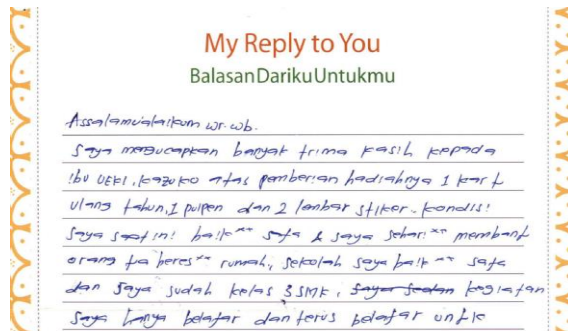 My Reply to You
BalasanDarikuUntukmu
Assalamualaikum wr.wb.
Saya mengucapkan banyak trima kasih kepada
ibu UEKI, kazuko atas pemberian hadiahnya 1 kart
ulang tahun, 1 pulpen dan 2 lembar stiker. kondisi
saya saat ini baik" saja & saya sehari" membant
orang tua beres" rumah, sekolah saya baik" saja
dan saya sudah kelas 3 SMK, saya sedan kegiatan
saya hanya belajar dan terus belajar untk